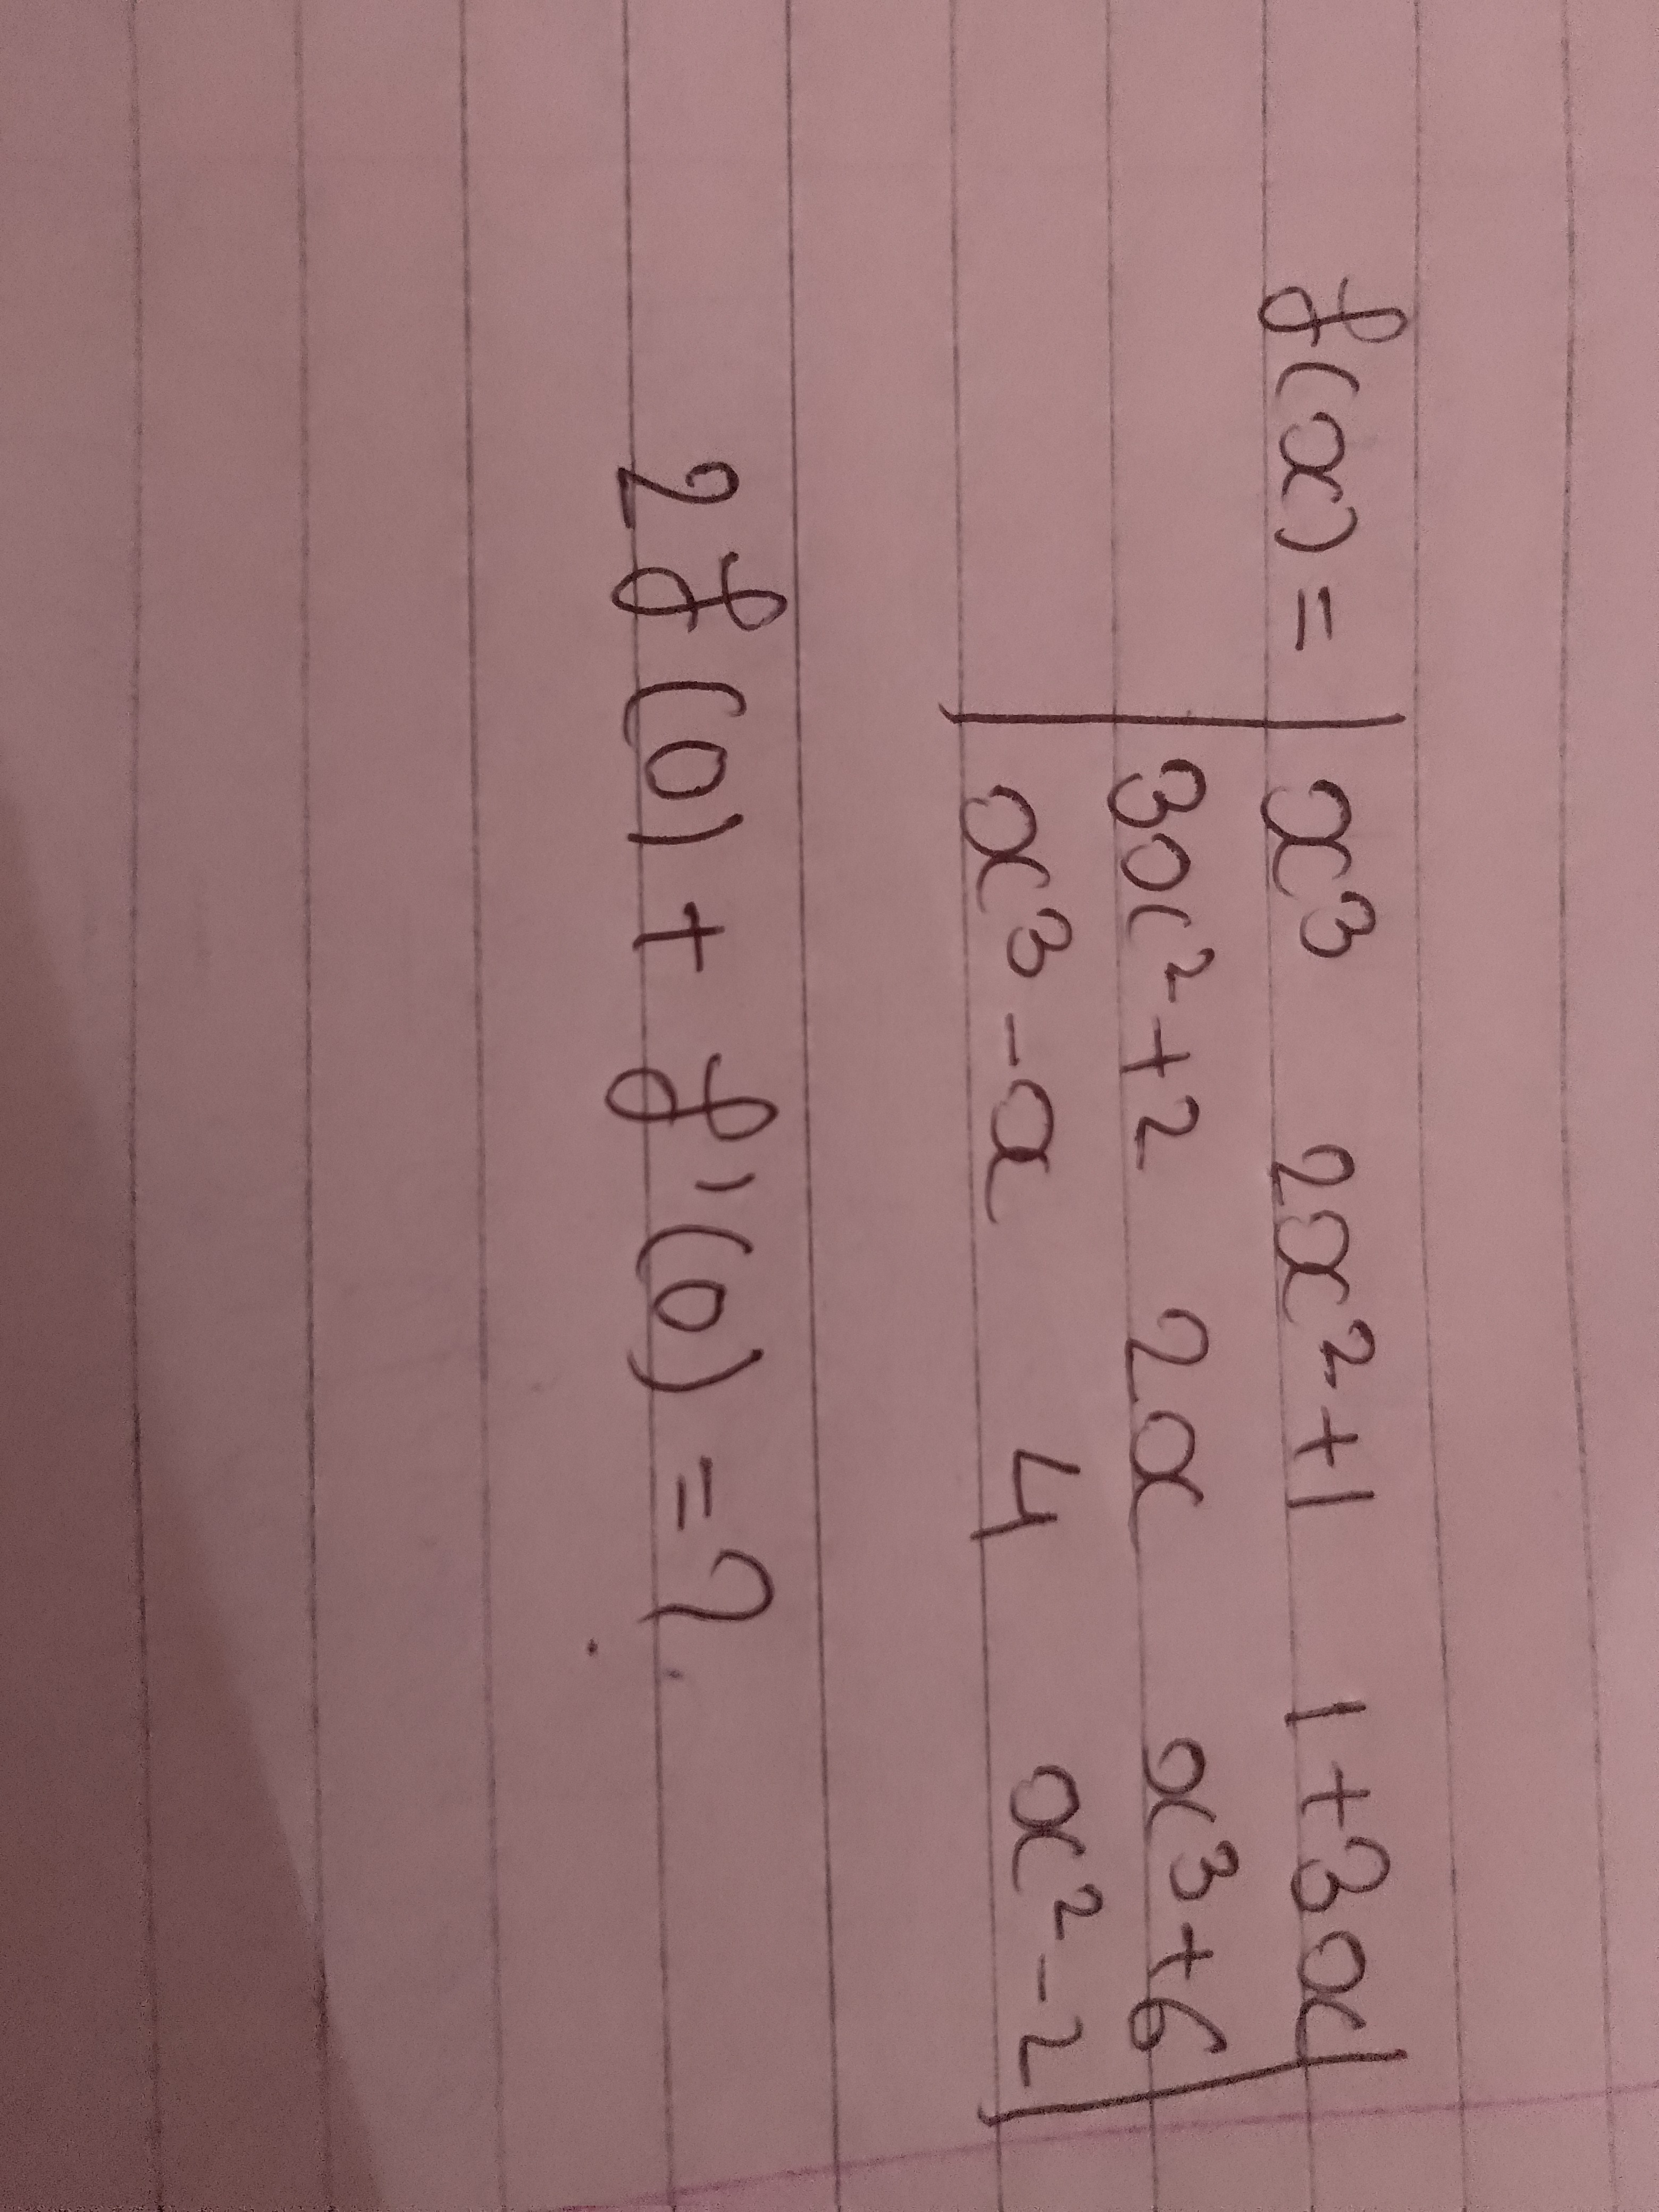 f(x) = | x³ 2x²+1 1+3x |
| 3x²+2 2x x³+6 |
| x³-x 4 x²-2 |
2f(0) + f'(0) = ?